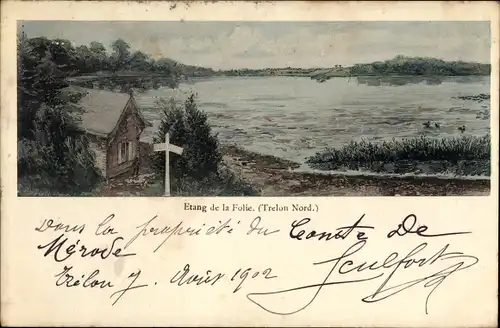 Etang de la Folie. (Trelon Nord.)
Dans la propriété du Comte De
Mérode
Trélon 7. Août 1902